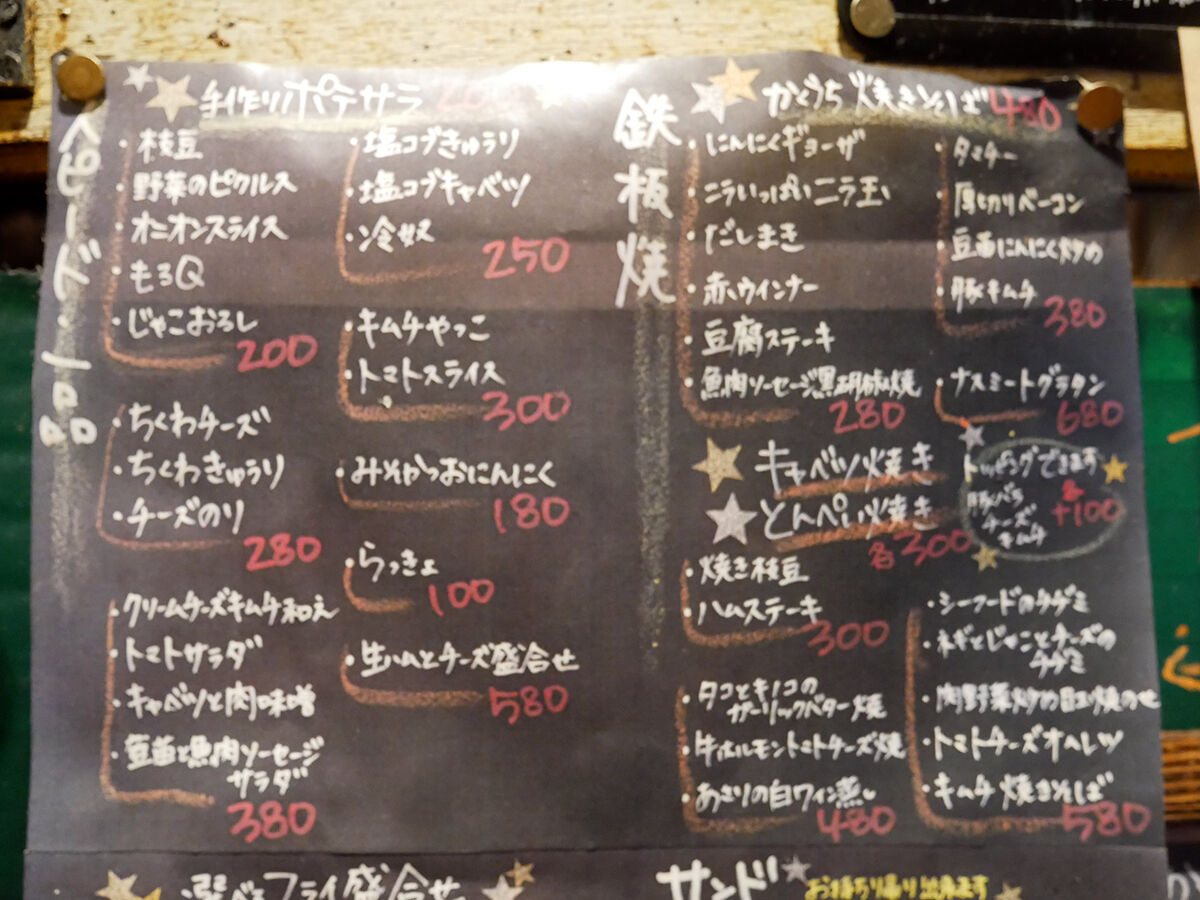 スピード・一品
手作りポテサラ
・枝豆
・野菜のピクルス
・オニオンスライス
・もろQ
・じゃこおろし
200
・ちくわチーズ
・ちくわきゅうり
・チーズのり
280
・クリームチーズキムチ和え
・トマトサラダ
・キャベツと肉味噌
・豆苗と魚肉ソーセージ
サラダ
380
・塩コブきゅうり
・塩コブキャベツ
・冷奴
250
・キムチやっこ
・トマトスライス
300
・みそかつおにんにく
180
・らっきょ
100
・生ハムとチーズ盛合せ
580
鉄板焼
かくうち焼きそば480
・にんにくギョーザ
・ニラいっぱいニラ玉
・だしまき
・赤ウインナー
・豆腐ステーキ
・魚肉ソーセージ黒胡椒焼
280
・タマチー
・厚切りベーコン
・豆苗にんにく炒め
・豚キムチ
380
・ナスミートグラタン
680
キャベツ焼き
とんぺい焼き
各300
トッピングできます
豚バラ
チーズ
キムチ
各+100
・焼き枝豆
・ハムステーキ
300
・タコとキノコの
ガーリックバター焼
・牛ホルモントマトチーズ焼
・あさりの白ワイン蒸し
480
・シーフードのチヂミ
・ネギとじゃことチーズの
チヂミ
・肉野菜炒めの目玉焼のせ
・トマトチーズオムレツ
・キムチ焼きそば
580
選べるフライ盛合せ
サンド
お持ち帰り出来ます